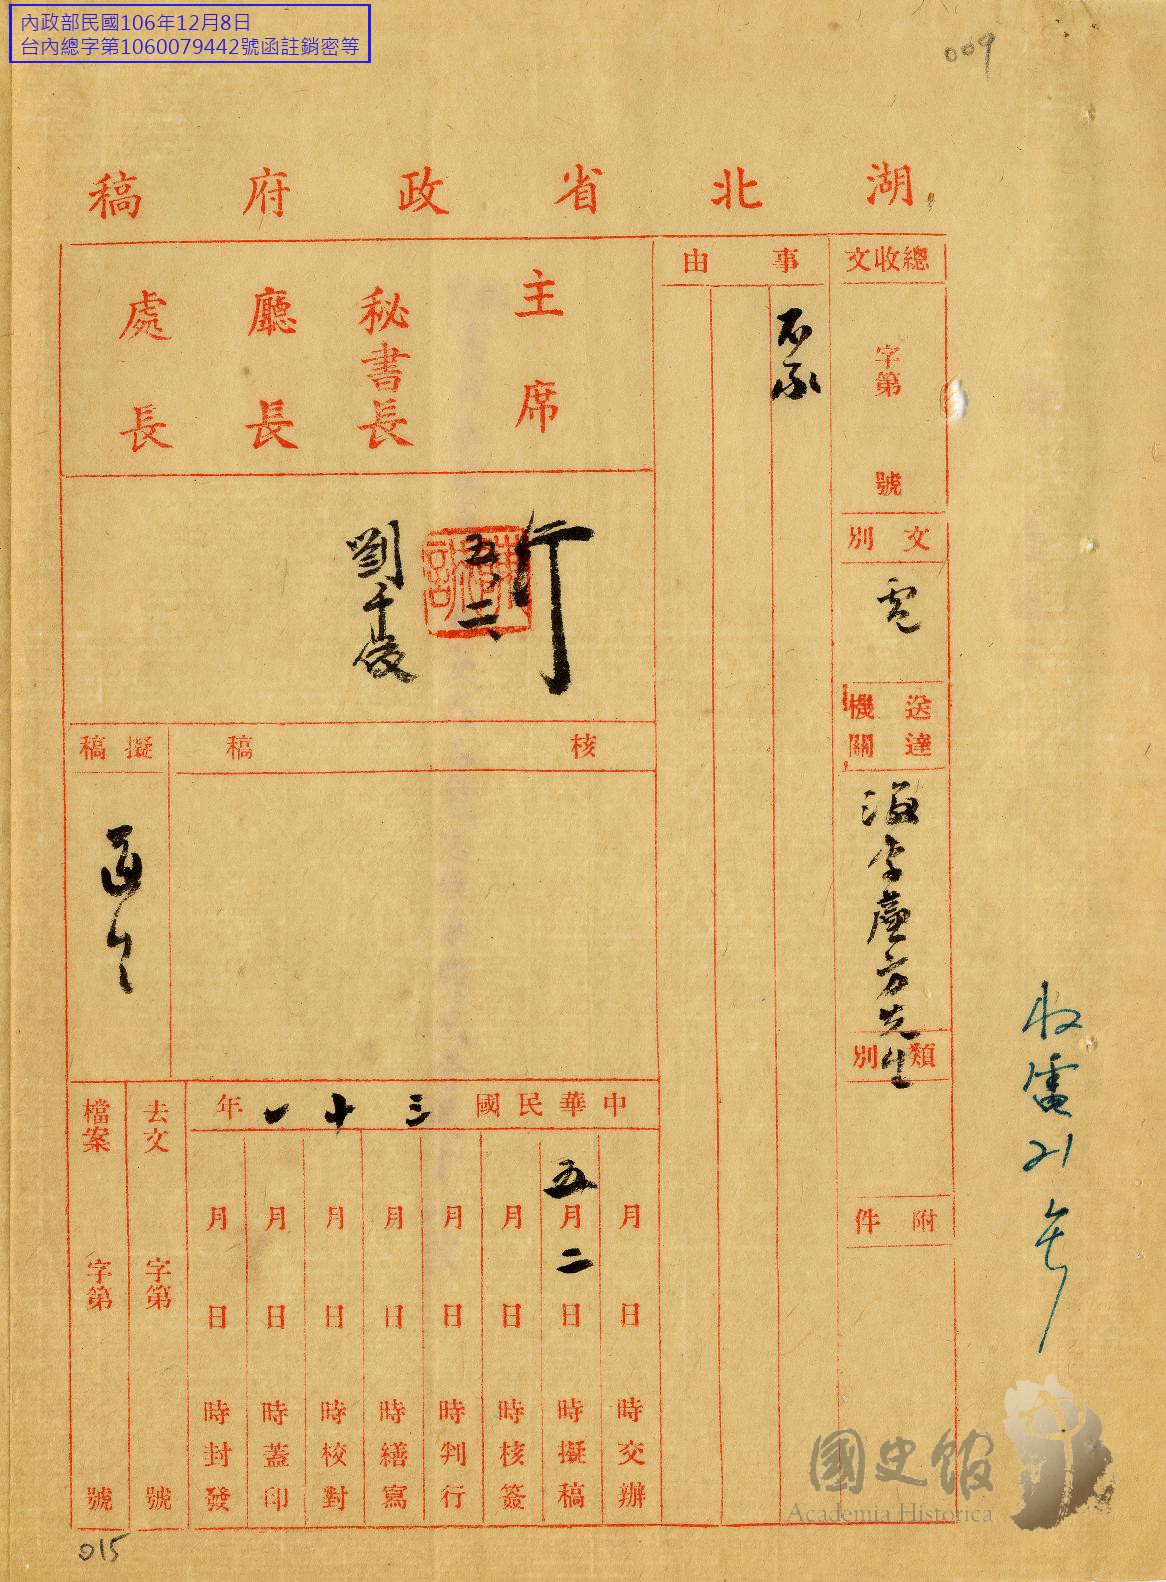 內政部民國106年12月8日
台內總字第1060079442號函註銷密等
009
湖北省政府稿
總收文
字第
號
文別
電
送達機關
李廉方先生
類別
附件
事由
主席
秘書長
廳長
處長
行
五、二、
劉千俊
核稿
擬稿
中華民國三十一年
月日時交辦
五月二日時擬稿
月日時核簽
月日時判行
月日時繕寫
月日時校對
月日時蓋印
月日時封發
去文
字第
號
檔案
字第
號
國史館
Academia Historica
015